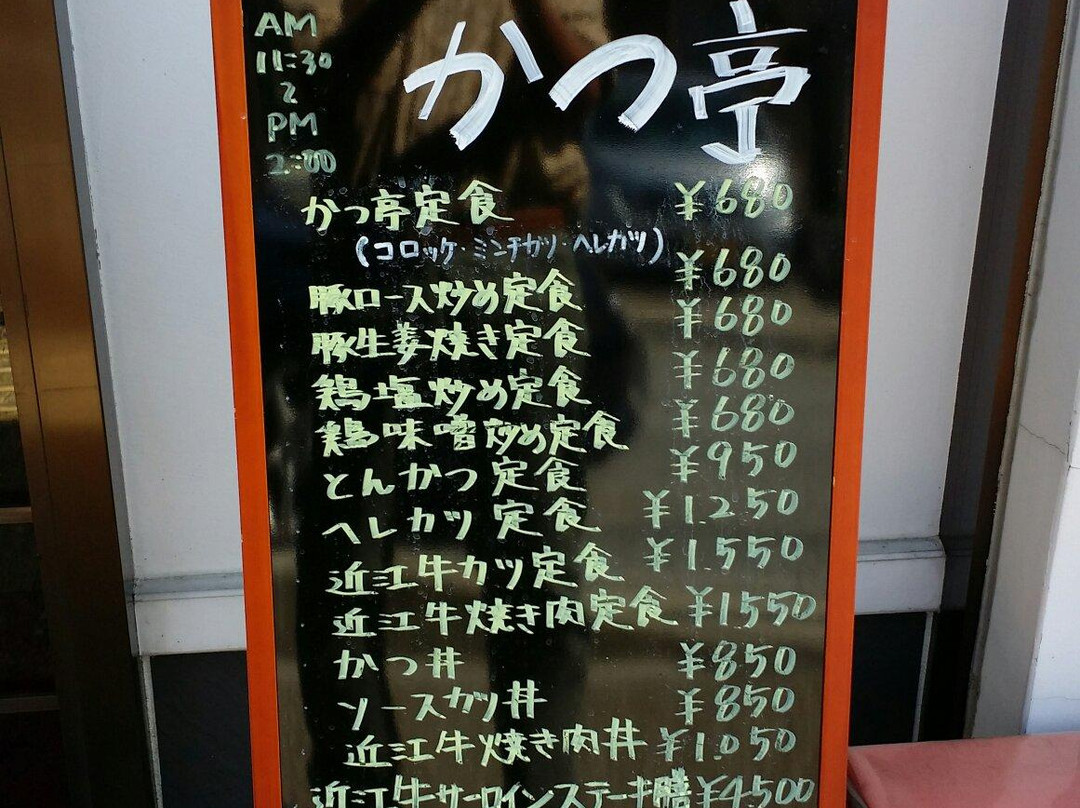 AM
11:30
〜
PM
2:00
かつ亭
かつ亭定食 ¥680
(コロッケ・ミンチカツ・ヘレカツ)
豚ロース炒め定食 ¥680
豚生姜焼き定食 ¥680
鶏塩炒め定食 ¥680
鶏味噌炒め定食 ¥680
とんかつ定食 ¥950
ヘレカツ定食 ¥1.250
近江牛カツ定食 ¥1.550
近江牛焼き肉定食 ¥1550
かつ丼 ¥850
ソースカツ丼 ¥850
近江牛焼き肉丼 ¥1.050
近江牛サーロインステーキ膳 ¥4500